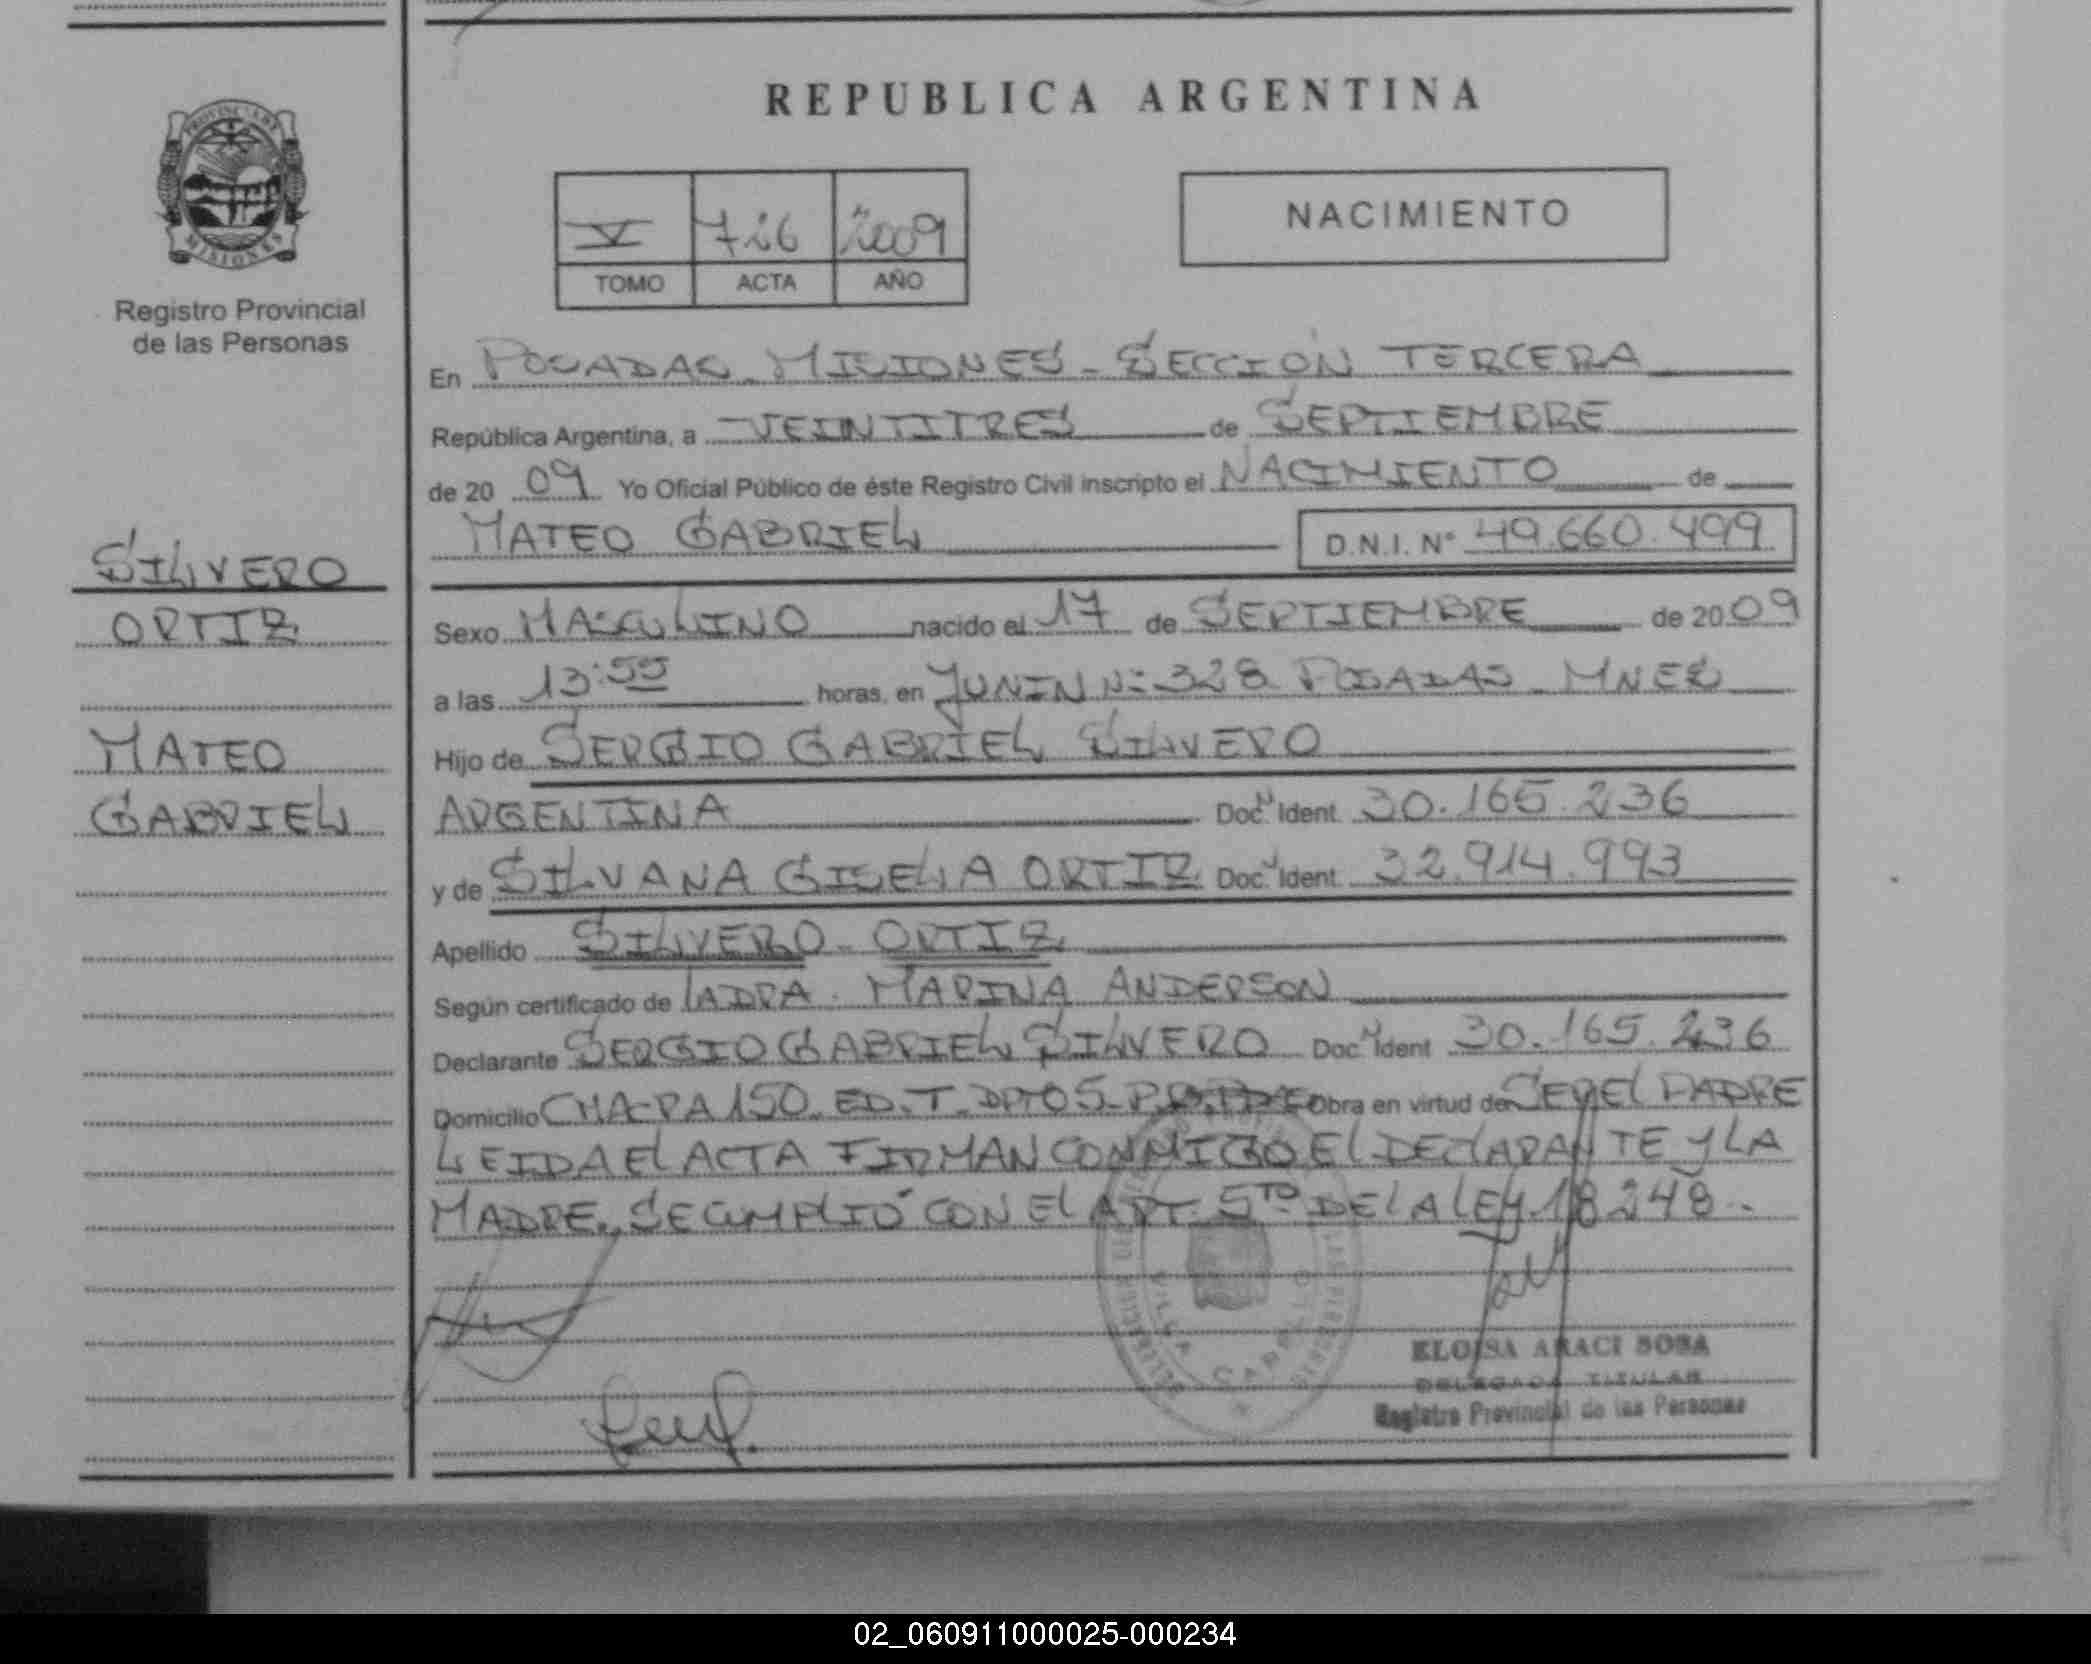 REPUBLICA ARGENTINA
PROVINCIA DE
MISIONES
Registro Provincial
de las Personas
NACIMIENTO
V 726 2009
TOMO ACTA AÑO
En POSADAS MISIONES - SECCION TERCERA
República Argentina, a VEINTITRES de SEPTIEMBRE
de 20 09 Yo Oficial Público de éste Registro Civil inscripto el NACIMIENTO de
MATEO GABRIEL D.N.I. N° 49.660.499
SILVERO
ORTIZ
MATEO
GABRIEL
Sexo MASCULINO nacido el 17 de SEPTIEMBRE de 20 09
a las 13:55 horas, en JUNIN N: 328 POSADAS MNES
Hijo de SERGIO GABRIEL SILVERO
ARGENTINA Doc. Ident. 30.165.236
y de SILVANA GISELA ORTIZ Doc. Ident. 32.914.993
Apellido SILVERO - ORTIZ
Según certificado de LA DRA. MARINA ANDERSON
Declarante SERGIO GABRIEL SILVERO Doc. Ident 30.165.236
Domicilio CHA-PA 150. ED. T. DPTO 5- Obra en virtud de SER EL PADRE
LEIDA EL ACTA FIRMAN CONMIGO EL DECLARANTE Y LA
MADRE. SE CUMPLIO CON EL ART. 5TO DE LA LEY 18248.
VILLA CABELLO
ELOISA ARACI SOSA
DELEGADA TITULAR
Registro Provincial de las Personas
02_060911000025-000234